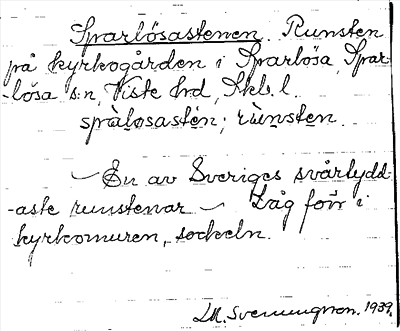 Sparlösastenen. Runsten
på kyrkogården i Sparlösa, Spar-
-lösa s:n, Viste hd, Skb. l.
spàlosastén; rùnsten.
~ En av Sveriges svårtydd-
-aste runstenar ~ Låg förr i
kyrkomuren, sockeln.
LM. Svenungsson. 1939.